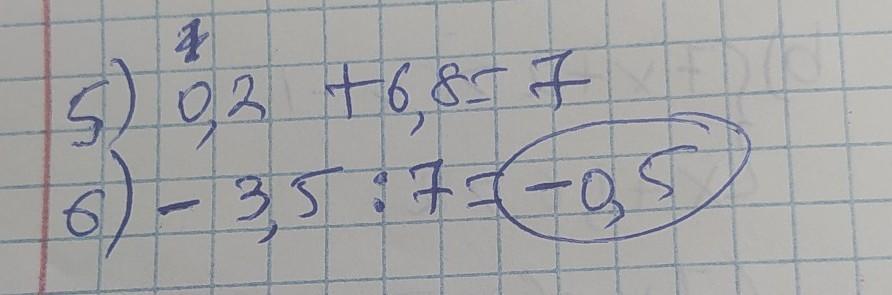 5) 0,2 + 6,8 = 7
6) - 3,5 : 7 = -0,5